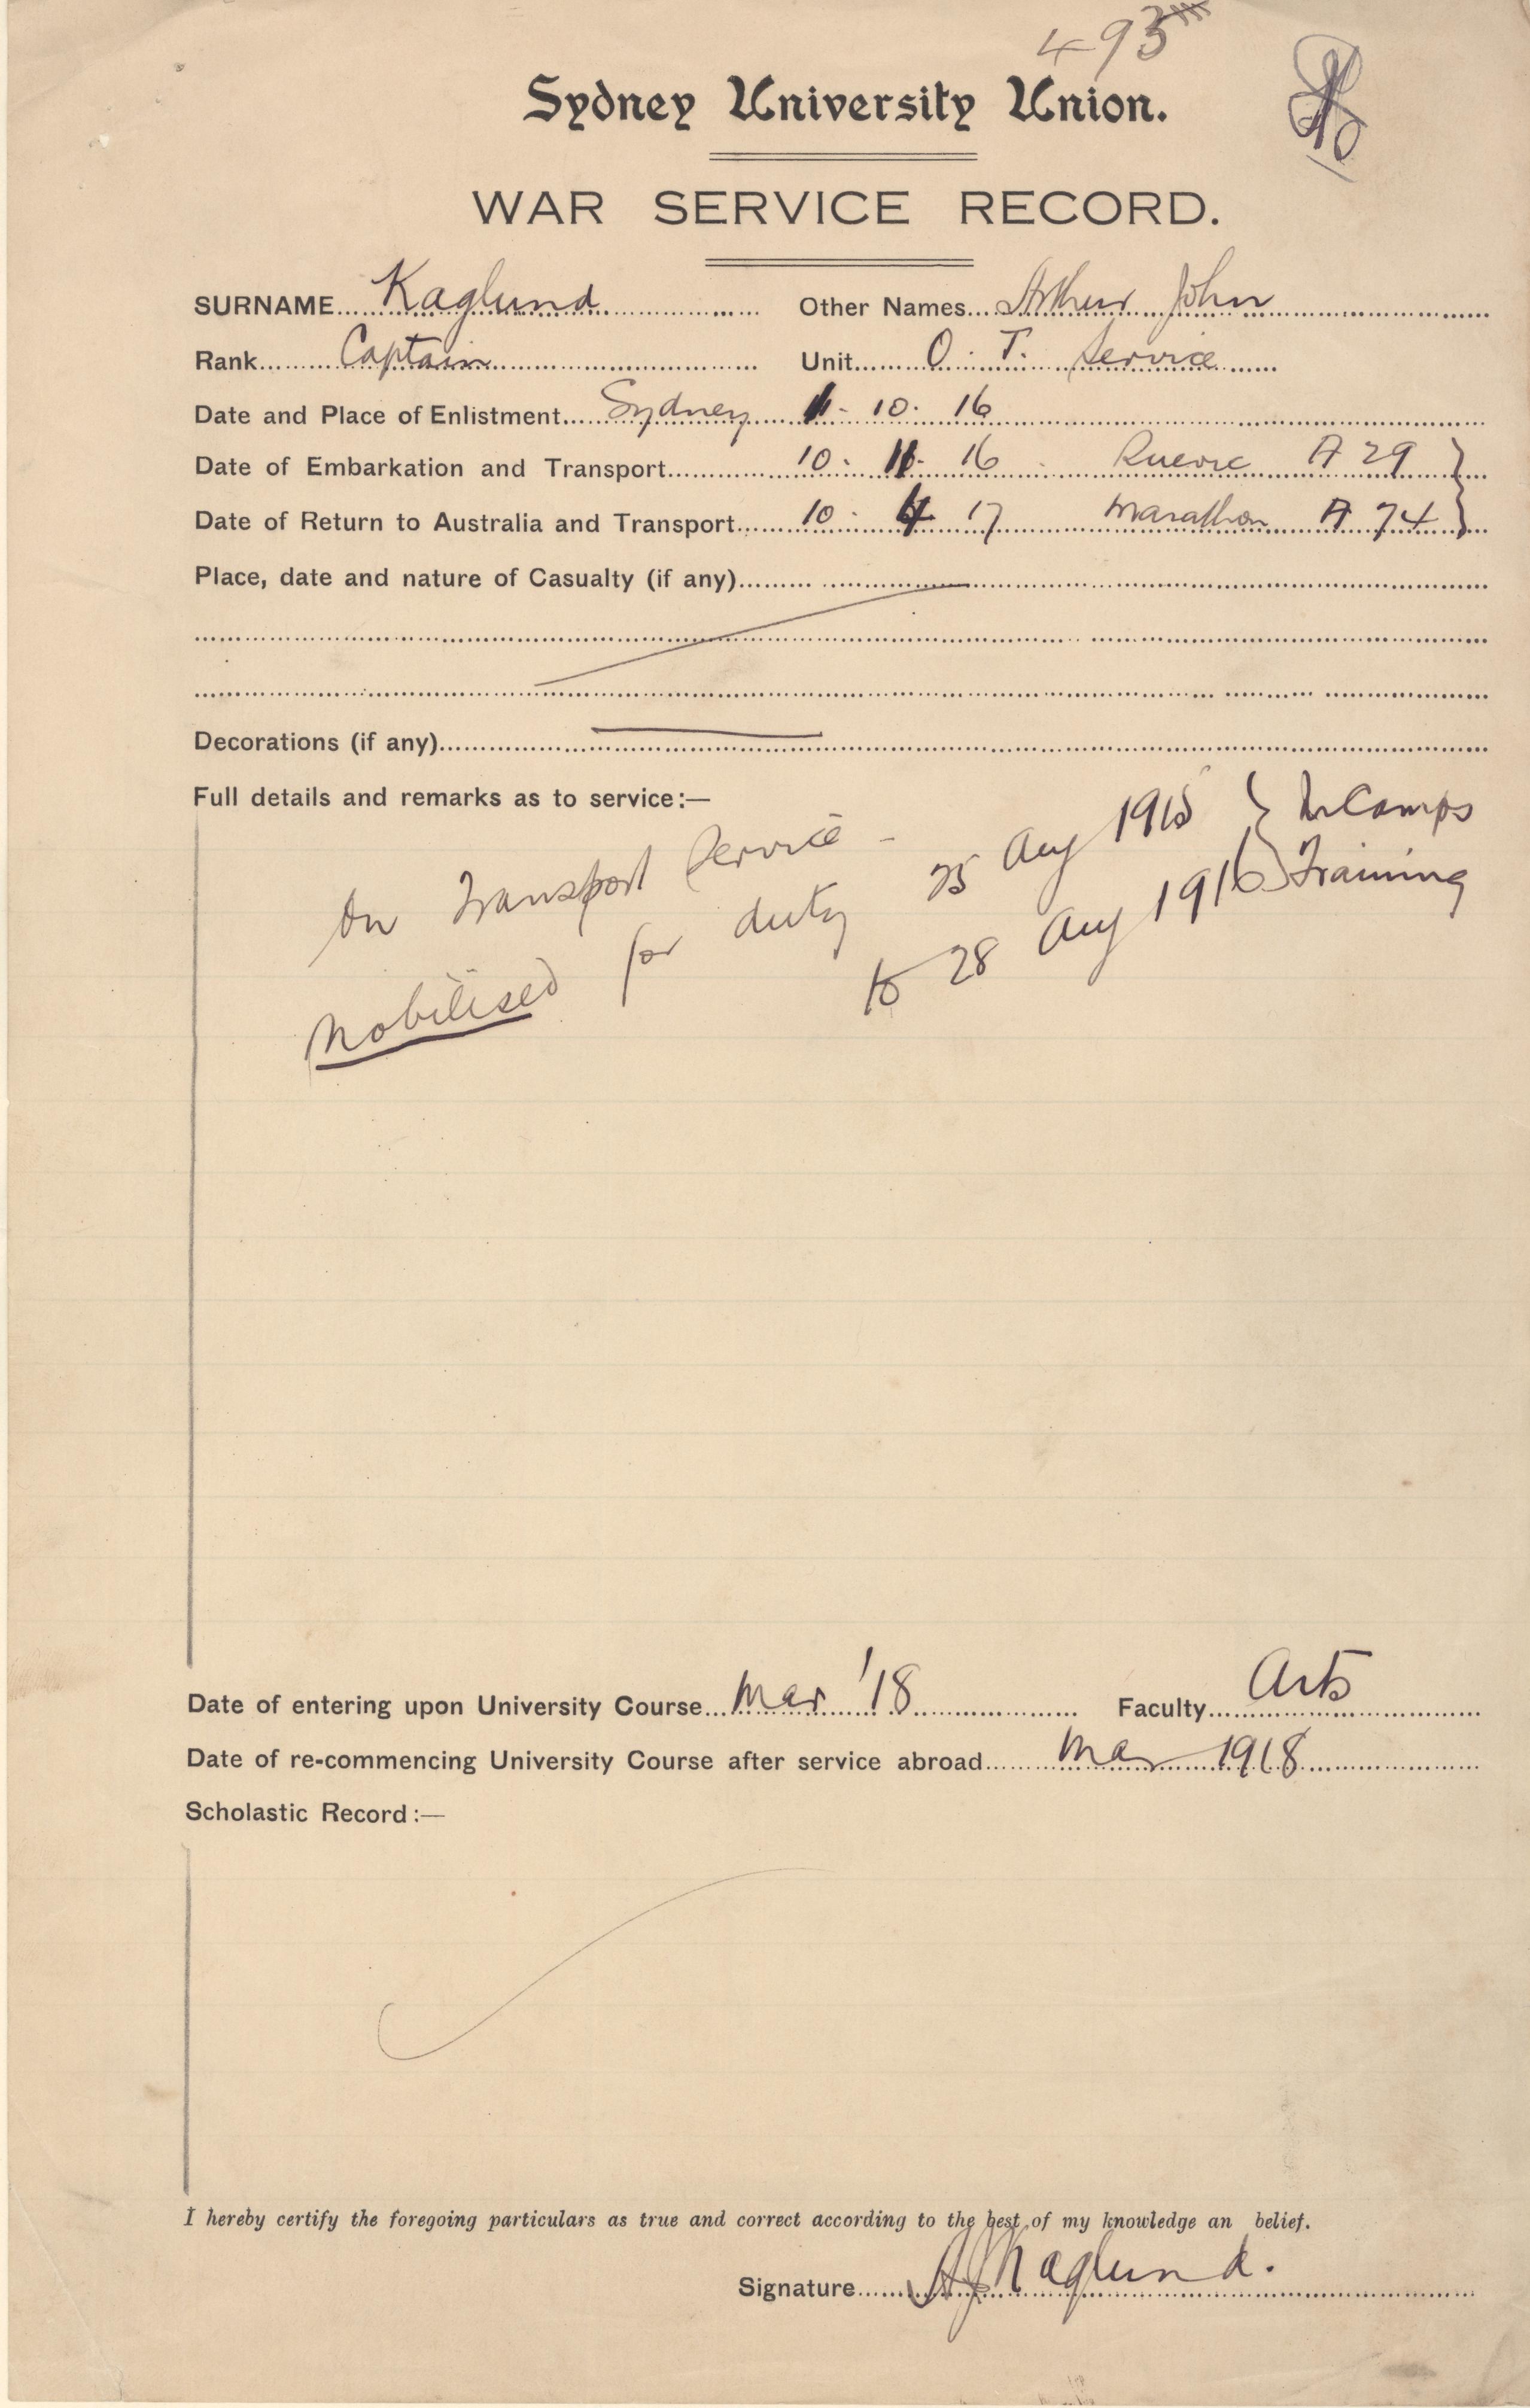 493
Sydney University Union.
WAR SERVICE RECORD.
SURNAME Kaglund Other Names Arthur John
Rank Captain Unit O. T. Service
Date and Place of Enlistment Sydney 11. 10. 16
Date of Embarkation and Transport 10. 11. 16 A 29
Date of Return to Australia and Transport 10. 4 17 Marathon A 74
Place, date and nature of Casualty (if any)
Decorations (if any)
Full details and remarks as to service:—
On Transport Service -
Mobilised for duty 25 Aug 1915 } In Camps
to 28 Aug 1916 } Training
Date of entering upon University Course Mar '18 Faculty Arts
Date of re-commencing University Course after service abroad Mar 1918
Scholastic Record:—
I hereby certify the foregoing particulars as true and correct according to the best of my knowledge an belief.
Signature AJKaglund.